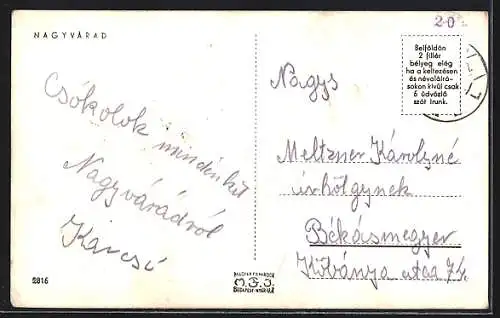 NAGYVÁRAD
20.
Belföldön
2 fillér
bélyeg elég
ha a keltezésen
és névaláírá-
sokon kívül csak
5 üdvözlő
szót írunk.
Nagys
Csókolok mindenkit
Nagyváradról
Karcsi
Meltzner Károlyné
úrhölgynek
Békásmegyer
Kőbánya utca 74.
2816
M.F.I.